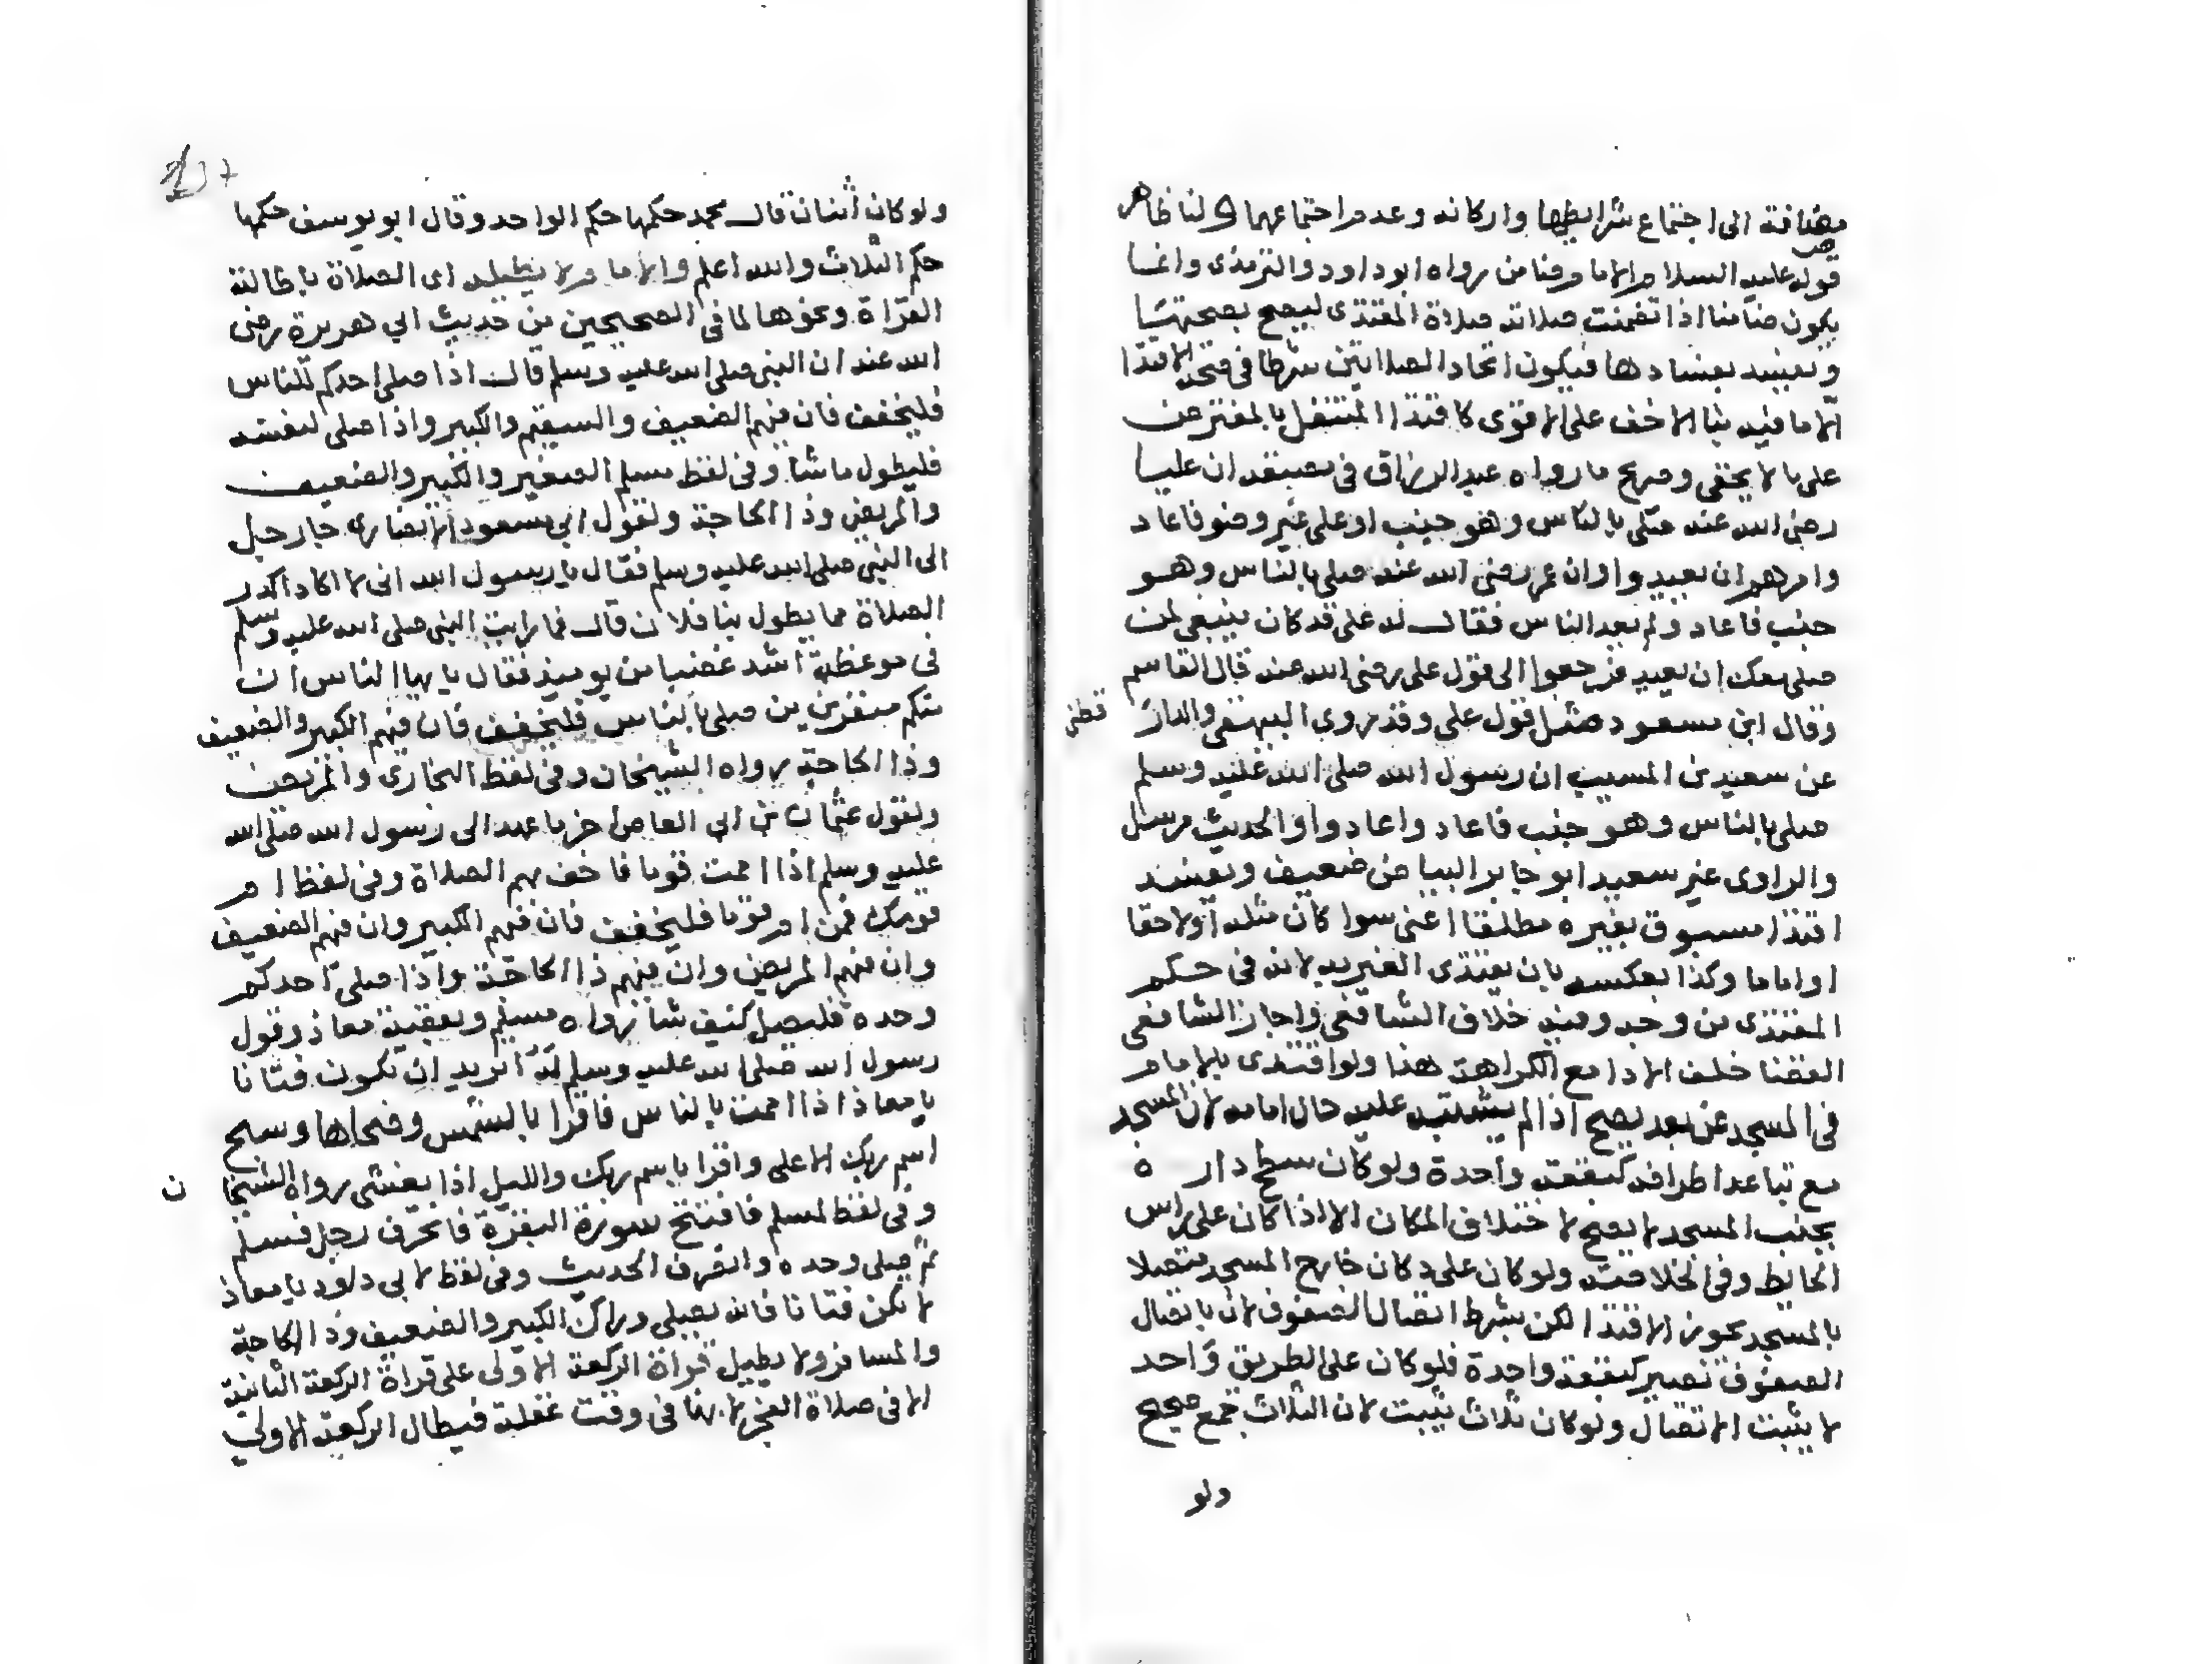 مضافة الى اجتماع شرايطها واركانه وعدم اجتماعهما ولنا ظاهر
قوله عليه السلام الامام ضامن رواه ابو داود والترمذى وانما
يكون ضامنا اذا تضمنت صلاته صلاة المقتدى ليصح بصحتها
وتفسد بفسادها فيكون اتحاد الصلاتين شرطا فى صحة الاقتدا
الا ما فيه بنا الاخف على الاقوى كاقتدا المتنفل بالمفترض
على ما لا يخفى وصريح ما رواه عبد الرزاق فى مصنفه ان عليا
رضى الله عنه صلى بالناس وهو جنب او على غير وضو فاعاد
وامرهم ان يعيدوا وان عمر رضى الله عنه صلى بالناس وهو
جنب فاعاد ولم يعد الناس فقال له على قد كان ينبغى لمن
صلى معك ان يعيد فرجعوا الى قول على رضى الله عنه قال القاسم
وقال ابن مسعود مثل قول على وقد روى البيهقى والدار
قطنى
عن سعيد بن المسيب ان رسول الله صلى الله عليه وسلم
صلى بالناس وهو جنب فاعاد واعادوا والحديث مرسل
والراوى عن سعيد ابو جابر البياضى ضعيف ويفسد
اقتدا مسبوق بغيره مطلقا اعنى سوا كان مثله او لاحقا
او اماما وكذا بعكسه بان يقتدى الغير به لانه فى حكم
المقتدى من وجه وفيه خلاف الشافعى واجاز الشافعى
القضا خلف الادا مع الكراهة هذا ولو اقتدى بالامام
فى المسجد عن بعد يصح اذا لم يشتبه عليه حال امامه لان المسجد
مع تباعد اطرافه كبقعة واحدة ولو كان سطح دار ه
بجنب المسجد لا يصح لاختلاف المكان الا اذا كان على راس
الحايط وفى الخلاصة ولو كان على دكان خارج المسجد متصلا
بالمسجد يجوز الاقتدا لكن بشرط اتصال الصفوف لان باتصال
الصفوف تصير كبقعة واحدة فلو كان على الطريق واحد
لا يثبت الاتصال ولو كان ثلاث يثبت لان الثلاث جمع صحيح
ولو
ولو كان اثنان قال محمد حكمها حكم الواحد وقال ابو يوسف حكمها
حكم الثلاث والله اعلم والامام لا يطيل اى الصلاة باطالة
القراة ونحوها لما فى الصحيحين من حديث ابي هريرة رضى
الله عنه ان النبى صلى الله عليه وسلم قال اذا صلى احدكم للناس
فليخفف فان فيهم الضعيف والسقيم والكبير واذا صلى لنفسه
فليطول ما شا وفى لفظ مسلم الصغير والكبير والضعيف
والمريض وذا الحاجة ولقول ابى مسعود الانصارى جا رجل
الى النبى صلى الله عليه وسلم فقال يا رسول الله انى لا اكاد ادرك
الصلاة مما يطول بنا فلان قال فما رايت النبى صلى الله عليه وسلم
فى موعظة اشد غضبا من يوميذ فقال يا يها الناس ان
منكم منفرين من صلى بالناس فليخفف فان فيهم الكبير والضعيف
وذا الحاجة رواه الشيخان وفى لفظ البخارى والمريض
ولقول عثمان بن ابى العاص اخر ما عهد الى رسول الله صلى الله
عليه وسلم اذا اممت قوما فاخف بهم الصلاة وفى لفظ ام
قومك فمن ام قوما فليخفف فان فيهم الكبير وان فيهم الضعيف
وان فيهم المريض وان فيهم ذا الحاجة واذا صلى احدكم
وحده فليصل كيف شا رواه مسلم ولقضية معاذ وقول
رسول الله صلى الله عليه وسلم له اتريد ان تكون فتانا
يا معاذ اذا اممت بالناس فاقرا بالشمس وضحاها وسبح
اسم ربك الاعلى واقرا باسم ربك والليل اذا يغشى رواه الشيخا
ن
وفى لفظ لمسلم فافتتح بسورة البقرة فانحرف رجل فسلم
ثم صلى وحده وانصرف الحديث وفى لفظ لابى داود يا معاذ
لا تكن فتانا فانه يصلى وراك الكبير والضعيف وذا الحاجة
والمسافر ولا يطيل قراة الركعة الاولى على قراة الركعة الثانية
الا فى صلاة الفجر لانها فى وقت غفلة فيطال الركعة الاولى